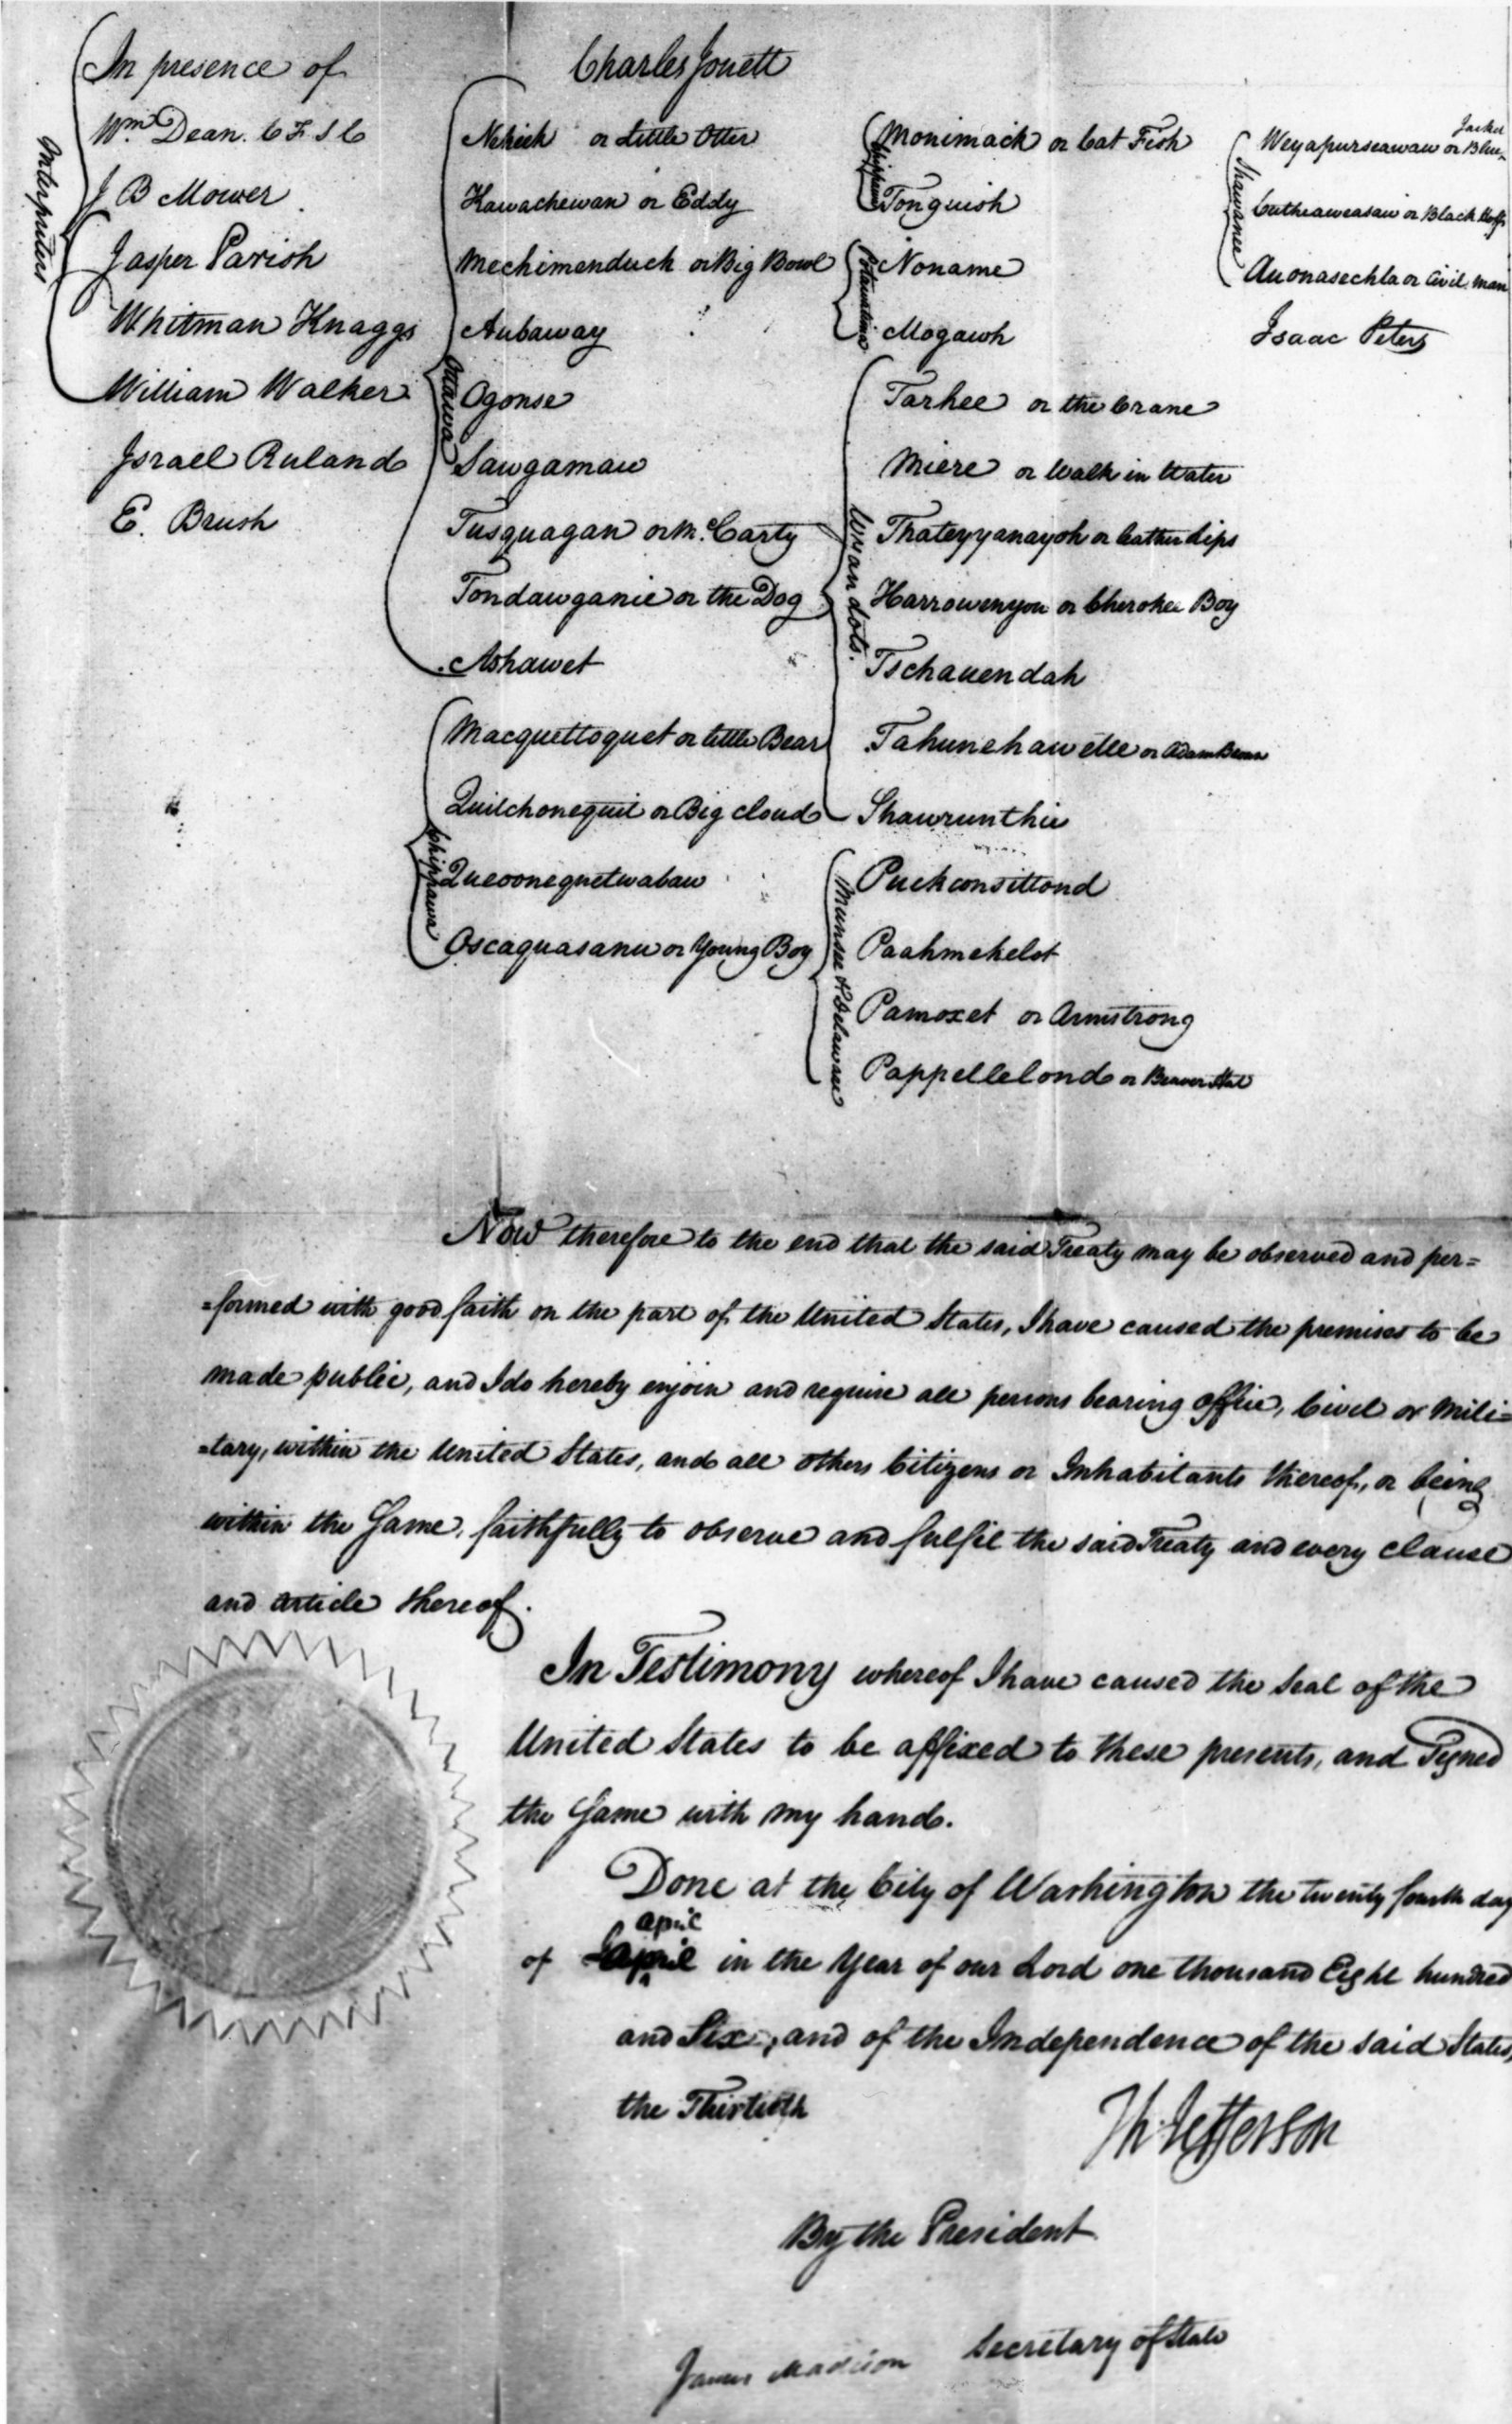 In presence of
Wm Dean. C F I C
J B Mower
Jasper Parish
Whitman Knaggs
William Walker
Israel Ruland
E. Brush
Interpreters
Charles Jouett
Nekeik or Little Otter
Kawachewan or Eddy
Mechimenduck or Big Bowl
Aubaway
Ogonse
Sawgamaw
Tusquagan or Mc Carty
Tondawganie or the Dog
Ashawet
Ottawa
Macquettoquet or little Bear
Quitchonequit or Big cloud
Queoonequetwabaw
Oscaquasanu or Young Boy
Chippawa
Monimack or Cat Fish
Tonquish
Noname
Mogawh
Tarhee or the Crane
Miere or Walk in Water
Thateyyanayoh or leather Lips
Harrowenyou or Cherokee Boy
Tschauendah
Tahunehawettee or Adam Brown
Shawrunthie
Wyandots.
Puckconsittond
Paahmehelot
Pamoxet or Armstrong
Pappellelond or Beaver Hat
Munsee & Delaware
Weyapurseawaw or Blue
Jacket
Cutheaweasaw or Black Hoff
Auonasechla or Civil Man
Shawanee
Isaac Peters
Now therefore to the end that the said Treaty may be observed and per=
=formed with good faith on the part of the United States, I have caused the premises to be
made public, and I do hereby enjoin and require all persons bearing office, Civil or Mili=
=tary, within the United States, and all others Citizens or Inhabitants thereof, or being
within the Same, faithfully to observe and fulfil the said Treaty and every clause
and article thereof.
In Testimony whereof I have caused the Seal of the
United States to be affixed to these presents, and Signed
the Same with my hand.
Done at the City of Washington the twenty fourth day
april
of April in the Year of our Lord one thousand Eight hundred
and Six, and of the Independence of the said States,
the Thirtieth
Th. Jefferson
By the President
James Madison Secretary of State